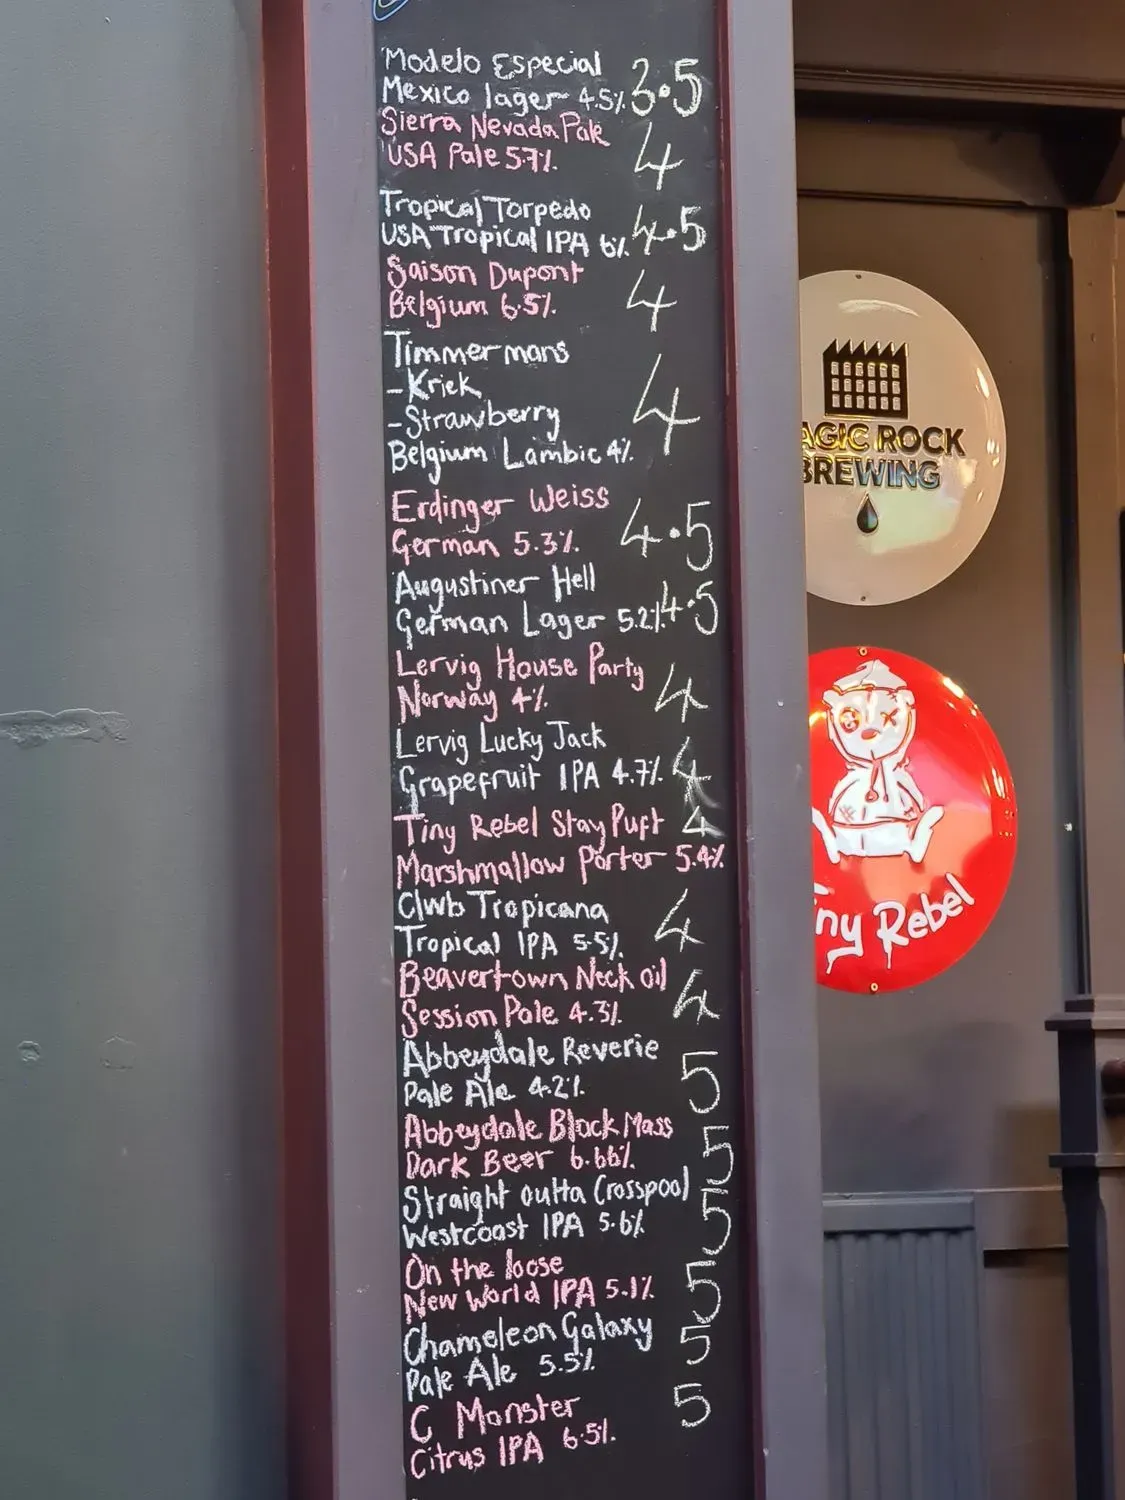 Modelo Especial
Mexico lager 4.5% 3.5
Sierra Nevada Pale
USA Pale 5.7% 4
Tropical Torpedo
USA Tropical IPA 6% 4.5
Saison Dupont
Belgium 6.5% 4
Timmermans
-Kriek
-Strawberry 4
Belgium Lambic 4%
Erdinger Weiss
German 5.3% 4.5
Augustiner Hell
German Lager 5.2% 4.5
Lervig House Party
Norway 4% 4
Lervig Lucky Jack
Grapefruit IPA 4.7% 4
Tiny Rebel Stay Puft 4
Marshmallow Porter 5.4%
Clwb Tropicana
Tropical IPA 5.5% 4
Beavertown Neck oil
Session Pale 4.3% 4
Abbeydale Reverie
Pale Ale 4.2% 5
Abbeydale Black Mass
Dark Beer 6.66% 5
Straight outta Crosspool
Westcoast IPA 5.6% 5
On the loose
New World IPA 5.1% 5
Chameleon Galaxy
Pale Ale 5.5% 5
C Monster
Citrus IPA 6.5% 5
AGIC ROCK
BREWING
iny Rebel